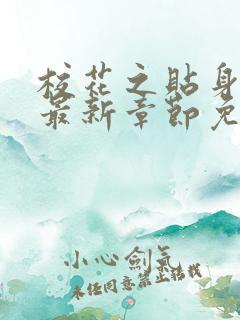 校花之贴身
最新章节免
小心劍氣
未经同意禁止转载